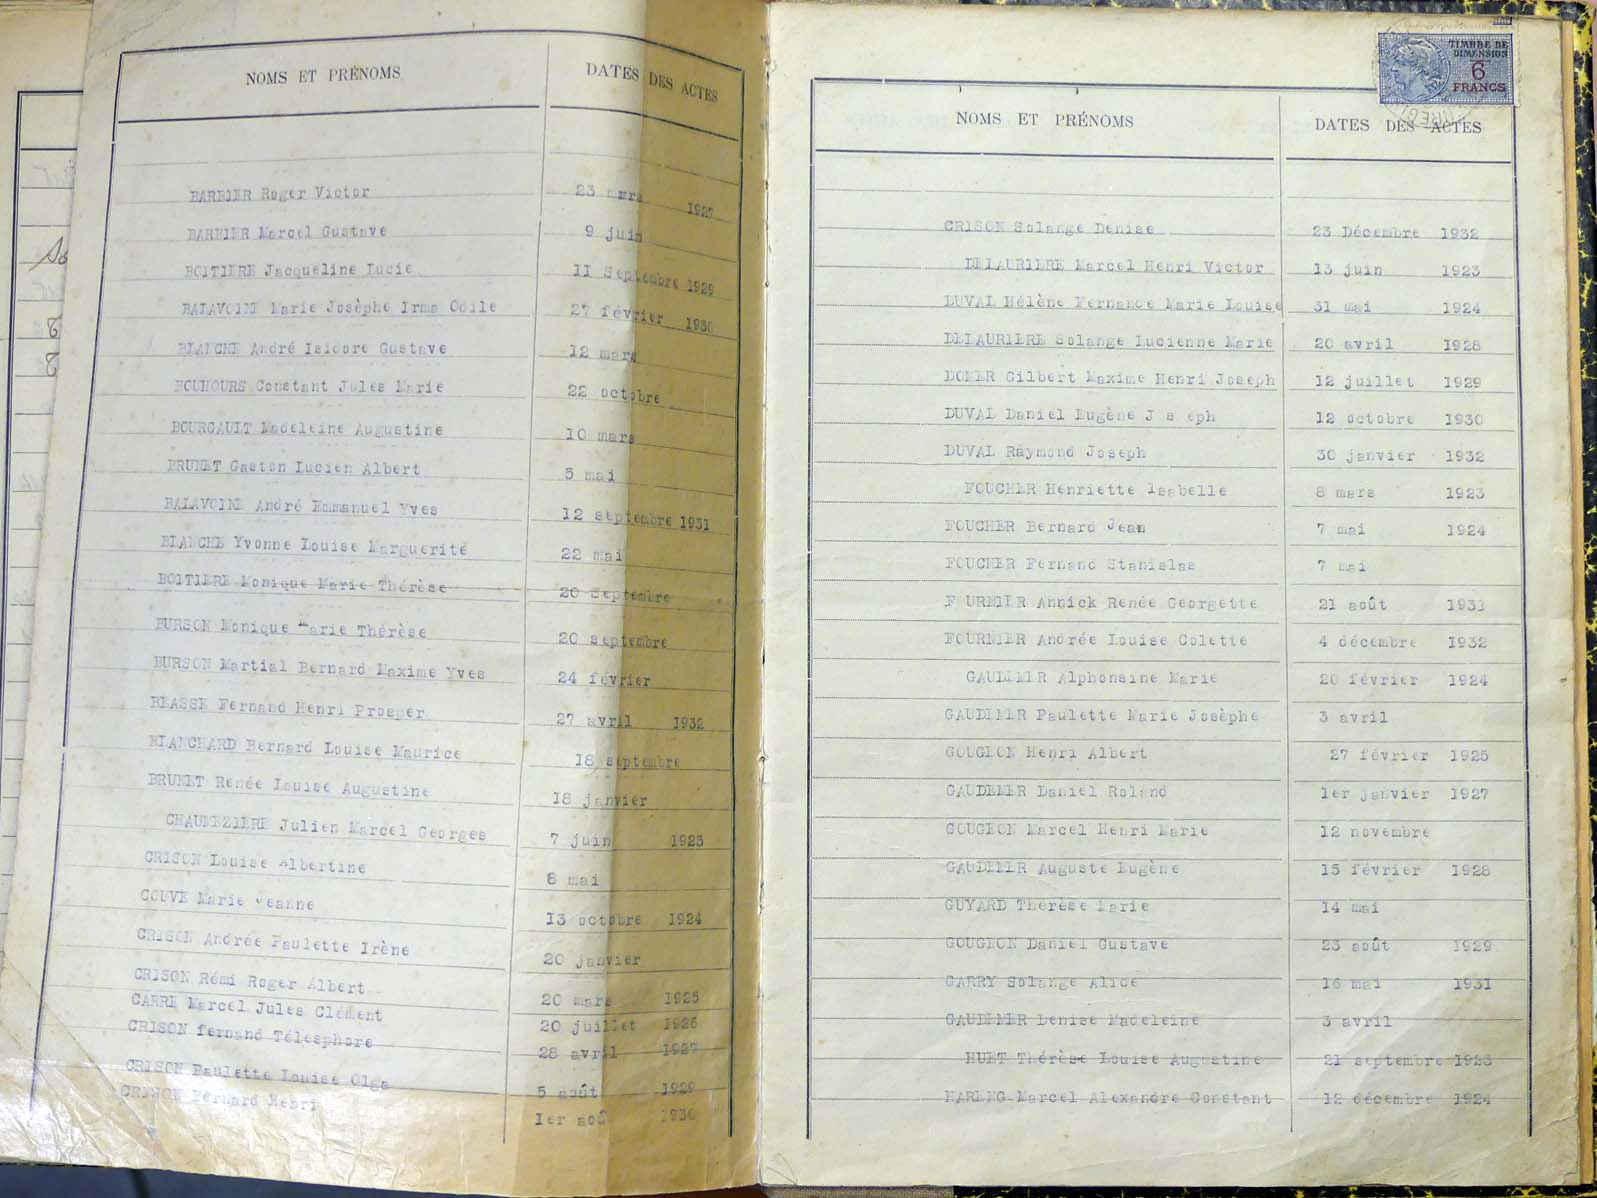 NOMS ET PRÉNOMS DATES DES ACTES
BARBIER Roger Victor 23 mars 1927
BARBIER Marcel Gustave 9 juin
BOITIERE Jacqueline Lucie 11 Septembre 1929
BALAVOINE Marie Josèphe Irma Odile 27 février 1930
BLANCHE André Isidore Gustave 12 mars
BOUHOURS Constant Jules Marie 22 octobre
BOURGAULT Madeleine Augustine 10 mars
BRUNET Gaston Lucien Albert 5 mai
BALAVOINE André Emmanuel Yves 12 septembre 1931
BLANCHE Yvonne Louise Marguerité 22 mai
BOITIERE Monique Marie Thérèse 20 Septembre
BURSON Monique Marie Thérèse 20 septembre
BURSON Martial Bernard Maxime Yves 24 février
BEASSE Fernand Henri Prosper 27 avril 1932
BLANCHARD Bernard Louise Maurice 18 septembre
BRUNET Renée Louise Augustine 18 janvier
CHAUMEZIERE Julien Marcel Georges 7 juin 1923
CRISON Louise Albertine 8 mai
COUVE Marie Jeanne 13 octobre 1924
CRISON Andrée Paulette Irène 20 janvier
CRISON Rémi Roger Albert 20 mars 1925
CARRE Marcel Jules Clément 20 juillet 1926
CRISON fernand Télesphore 28 avril 1927
CRISON Paulette Louise Olga 5 août 1929
CRISON Bernard Henri 1er aoû 1930
TIMBRE DE
DIMENSION
6
FRANCS
NOMS ET PRÉNOMS DATES DES ACTES
CRISON Solange Denise 23 Décembre 1932
DELAURIERE Marcel Henri Victor 13 juin 1923
DUVAL Hélène Fernance Marie Louise 31 mai 1924
DELAURIERE Solange Lucienne Marie 20 avril 1928
DOMER Gilbert Maxime Henri Joseph 12 juillet 1929
DUVAL Daniel Eugène J s eph 12 octobre 1930
DUVAL Raymond Joseph 30 janvier 1932
FOUCHER Henriette Isabelle 8 mars 1923
FOUCHER Bernard Jean 7 mai 1924
FOUCHER Fernand Stanislas 7 mai
F URNIER Annick Renée Georgette 21 août 1931
FOURNIER Andrée Louise Colette 4 décembre 1932
GAUDEMER Alphonsine Marie 20 février 1924
GAUDEMER Paulette Marie Josèphe 3 avril
GOUGEON Henri Albert 27 février 1925
GAUDEMER Daniel Roland 1er janvier 1927
GOUGEON Marcel Henri Marie 12 novembre
GAUDEMER Auguste Eugène 15 février 1928
GUYARD Thérèse Marie 14 mai
GOUGEON Daniel Gustave 23 août 1929
GARRY Solange Alice 16 mai 1931
GAUDEMER Denise Madeleine 3 avril
HUET Thérèse Louise Augustine 21 septembre 1923
HARENG Marcel Alexandre Constant 12 décembre 1924